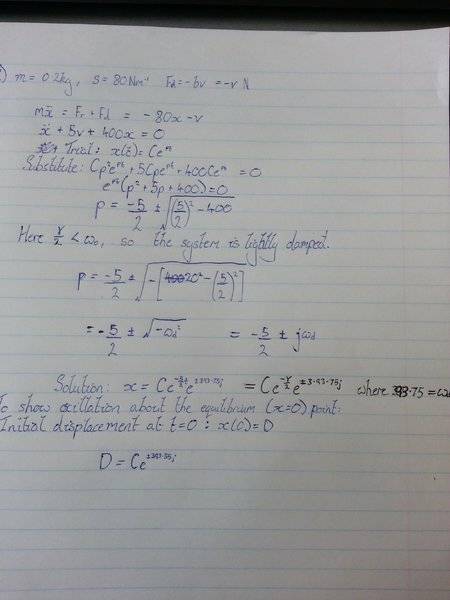 ) m = 0.2kg, s = 80Nm⁻¹ Fd = -bv = -v N
mẍ = Fr + Fd = -80x - v
ẍ + 5v + 400x = 0
Trial: x(t) = Ce^pt
Substitute: Cp²e^pt + 5Cpe^pt + 400Ce^pt = 0
e^pt(p² + 5p + 400) = 0
p = -5/2 ± √((5/2)² - 400)
Here γ/2 < ω₀, so the system is lightly damped.
p = -5/2 ± √(-[20² - (5/2)²])
= -5/2 ± √(-ωd²) = -5/2 ± jωd
Solution: x = Ce^(-5/2 t) e^(±393.75j) = Ce^(-γ/2) e^(±393.75j) where 393.75 = ωd
To show oscillation about the equilibrium (x=0) point:
Initial displacement at t=0 : x(0) = D
D = Ce^(±393.75j)